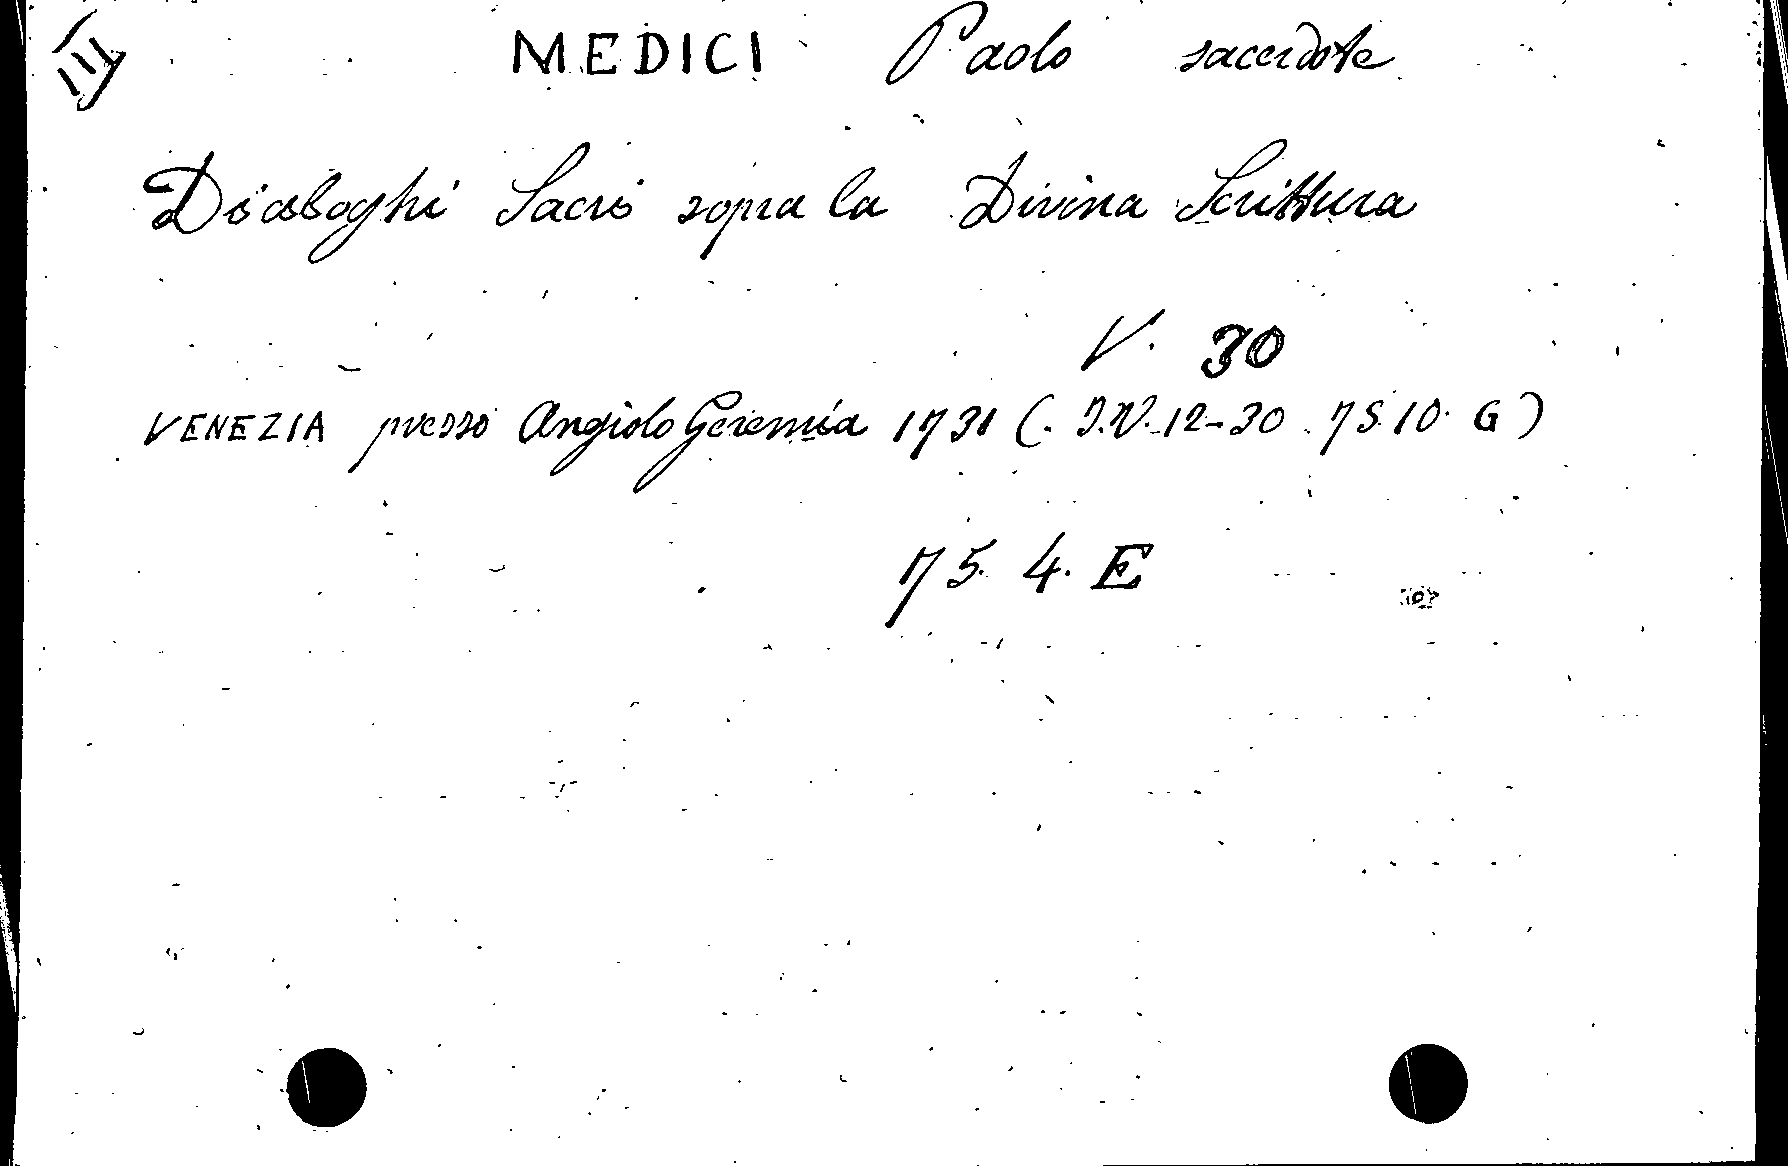 III
MEDICI Paolo sacerdote
Dialoghi Sacri sopra la Divina Scrittura
V. 30
VENEZIA presso Angiolo Geremia 1731 (. I.V. 12-30 75.10. G)
75. 4. E